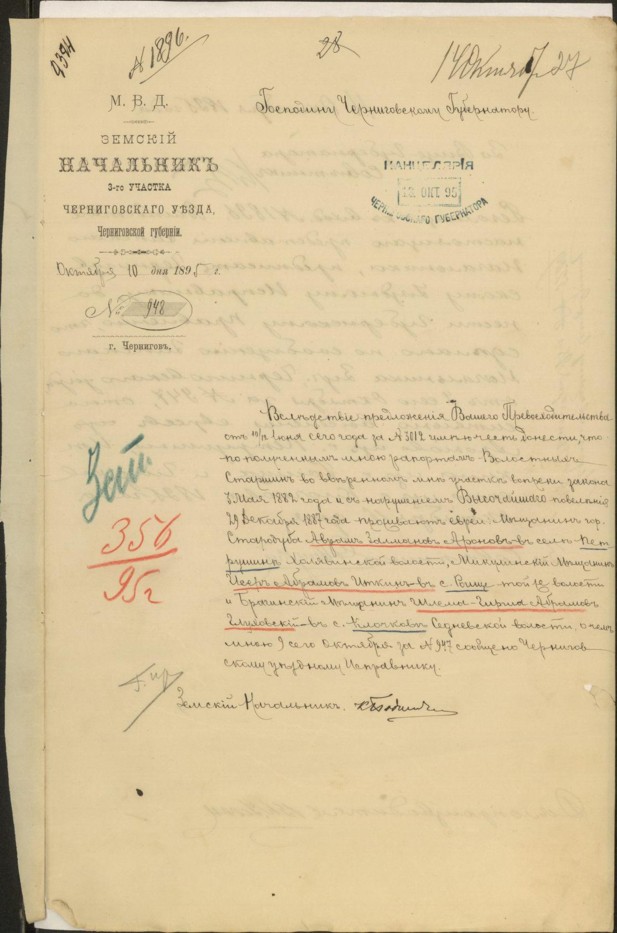 9394
№ 1896.
28
14 Октября 27
М. В. Д.
ЗЕМСКІЙ
НАЧАЛЬНИКЪ
3-го УЧАСТКА
ЧЕРНИГОВСКАГО УѢЗДА,
Черниговской губерніи.
Октября 10 дня 1895 г.
№ 948
г. Черниговъ.
Господину Черниговскому Губернатору.
КАНЦЕЛЯРІЯ
12 ОКТ. 95
ЧЕРНИГОВСКАГО ГУБЕРНАТОРА
Вслѣдствіе предложенія Вашего Превосходительства
отъ Іюня сего года за № 3012 имѣю честь донести, что
по полученнымъ мною рапортамъ Волостныхъ
Старшинъ во ввѣренномъ мнѣ участкѣ вопреки закона
3 Мая 1882 года и съ нарушеніемъ Высочайшаго повелѣнія
29 Декабря 1887 года проживаютъ евреи Мѣщанинъ гор.
Стародуба Авраам Залмановъ Ароновъ въ селѣ Пет
рушинѣ Халявинской волости, Микулинскій Мѣщанинъ
Абрамовъ Иткинъ въ с. Рыще той же волости
и Брагинскій Мѣщанинъ Шлема-Гирша Абрамовъ
Глуховскій въ с. Клочковѣ Седневской волости, о чемъ
мною 9 сего Октября за № 947 сообщено Чернигов
скому уѣздному Исправнику.
Земскій Начальникъ
356
95 г